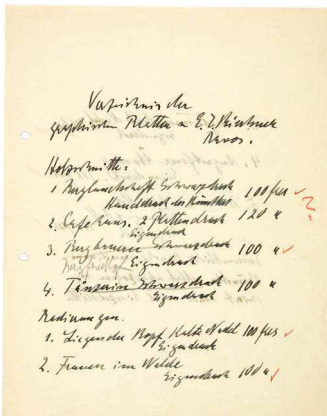 Verzeichnis der
graphischen Blätter v. E. L. Kirchner
Davos.
Holzschnitte:
1 Berglandschaft Schwarzdruck 100 frcs
Handdruck des Künstlers
2. Cafehaus. 2 Plattendruck 120 "
Eigendruck
3. Schwarzdruck 100 "
Eigendruck
4. Tänzerin Schwarzdruck 100 "
Eigendruck
Radierungen.
1. Liegender Kopf Kalte Nadel 100 frcs
Eigendruck
2. Frauen im Walde
Eigendruck 100 "